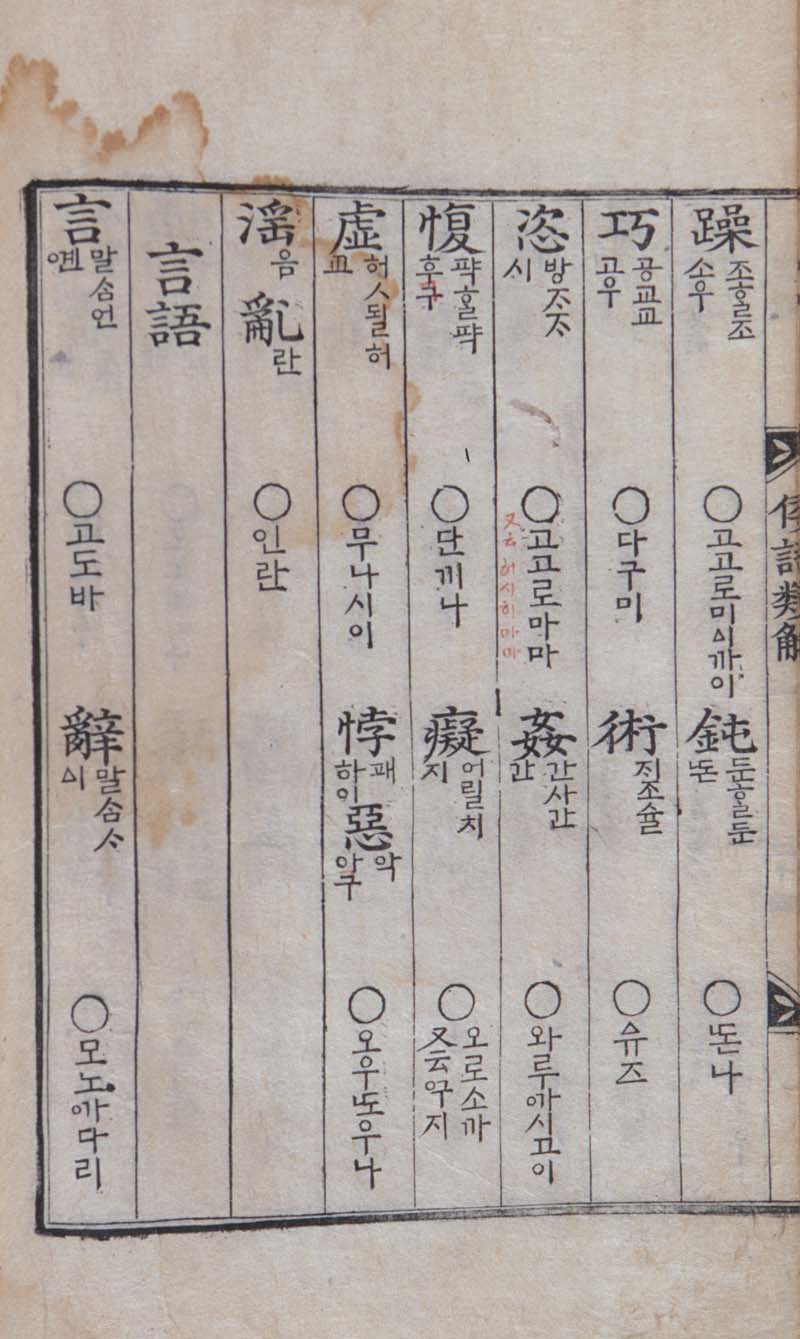 倭語類解
躁 조ᄒᆞᆯ조 소우 ○고고로미ᅀᅵ까이 鈍 둔ᄒᆞᆯ둔 ᄯᅩᆫ ○ᄯᅩᆫ나
巧 공교교 고우 ○다구미 術 ᄌᆡ조슐 ○슈즈
恣 방ᄌᆞᄌᆞ 시 ○고고로마마 又云 허시히마마 姦 간사간 간 ○와루ᅁᅡ시고이
愎 퍅ᄒᆞᆯ퍅 후구 ○단끼나 癡 어릴치 지 ○오로소까 又云구지
虛 허ᄉᆞ될허 교 ○무나시이 悖 패 하이 惡 악 아구 ○오우ᄯᅩ우나
淫 음 亂 란 ○인란
言語
言 말ᄉᆞᆷ언 옌 ○고도바 辭 말ᄉᆞᆷᄉᆞ ᅀᅵ ○모노ᅁᅡ다리